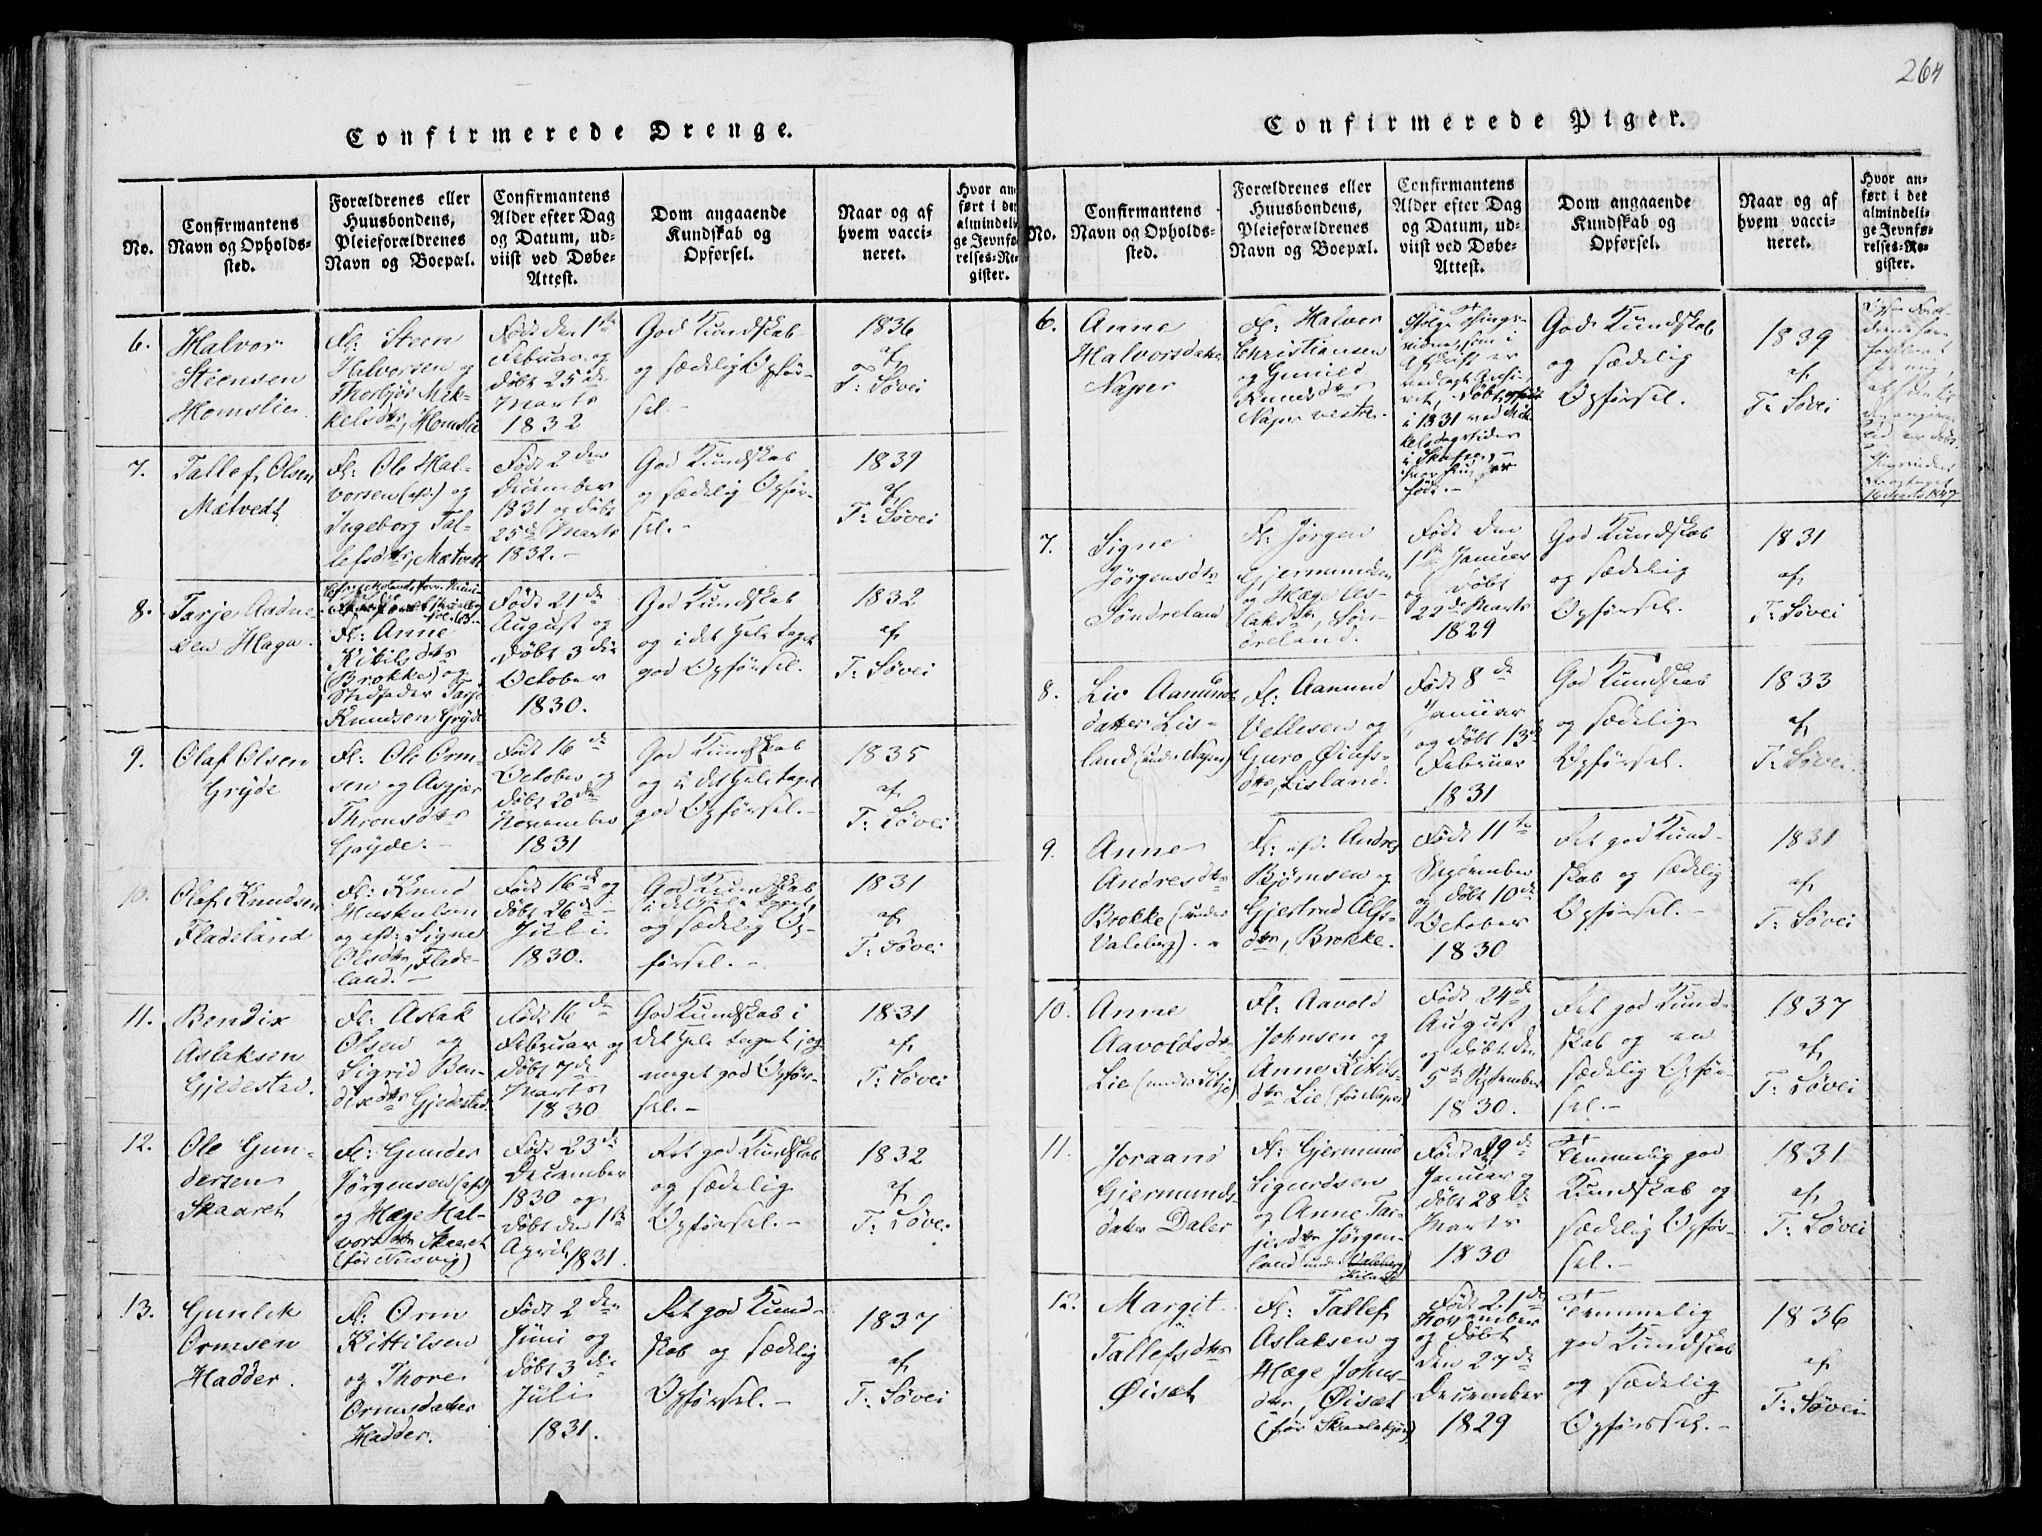 264
Confirmerede Drenge.
No.
Confirmantens
Navn og Opholds-
sted.
Forældrenes eller
Huusbondens,
Pleieforældrenes
Navn og Boepæl.
Confirmantens
Alder efter Dag
og Datum, ud-
viist ved Døbe-
Attest.
Dom angaaende
Kundskab og
Opførsel.
Naar og af
hvem vacci-
neret.
Hvor an-
ført i det
almindeli-
ge Jevnfø-
relses-Re-
gister.
6.
Halvor
Steensen
Homslie.
Fl: Steen
Halvorsen og
Thorbjør Mik-
kelsdtr, Homslie
Født den 1ste
Februar og
døbt 25de
Marts
1832
God Kundskab
og sædelig Opfør-
sel.
1836
af
T: Løvei
7.
Tallef Olsen
Mætvedt
Fl: Ole Hal-
vorsen (afd:) og
Ingeborg Tal-
lefsdtr, Mætvedt
Født 2den
December
1831 og døbt
25de Marts
1832.
God Kundskab
og sædelig Opfør-
sel.
1839
af
T: Løvei
8.
Tarje Aadne-
sen Haga.
Fl: Anne
Kittilsdtr
(Brokke) og
Stedfader Tarje
Knudsen Grÿde
Født 21de
August og
døbt 3die
October
1830.
God Kundskab
og i det hele taget
god Opførsel.
1832
af
T: Løvei
9.
Olaf Olsen
Grÿde
Fl: Ole Orm-
sen og Asgjær
Thronsdtr
Grÿde.
Født 16de
October og
døbt 20de
November
1831
God Kundskab
og i det hele taget
god Opførsel.
1835
af
T: Løvei
10.
Olaf Knudsen
Fladeland
Fl: Knud
Huskulsen
og afd: Signe
Olsdtr, Flade-
land.
Født 16de og
døbt 26de
Juli
1830.
God Kundskab
i det hele taget,
og sædelig Op-
førsel.
1831
af
T: Løvei
11.
Bendix
Aslaksen
Gjedestad.
Fl: Aslak
Olsen og
Sigrid Ben-
dixdtr Gjedestad
Født 16de
Februar og
døbt 7de
Marts
1830
God Kundskab i
det hele taget, og
meget god Opfør-
sel.
1831
af
T: Løvei
12.
Ole Gun-
dersen
Skaaret
Fl: Gunder
Jørgensen (afd)
og Hæge Hal-
vorsdtr Skaaret
Født 23de
December
1830 og
døbt den 1ste
April 1831.
Ret god Kundskab
og sædelig
Opførsel.
1832
af
T: Løvei
13.
Gunlek
Ormsen
Hadder.
Fl: Orm
Kittilsen
og Thore
Ormsdatter
Hadder.
Født 2den
Juni og
døbt 3die
Juli
1831.
Ret god Kund-
skab og sædelig
Opførsel.
1837
af
T: Løvei
Confirmerede Piger.
No.
Confirmantens
Navn og Opholds-
sted.
Forældrenes eller
Huusbondens,
Pleieforældrenes
Navn og Boepæl.
Confirmantens
Alder efter Dag
og Datum, ud-
viist ved Døbe-
Attest.
Dom angaaende
Kundskab og
Opførsel.
Naar og af
hvem vacci-
neret.
Hvor an-
ført i det
almindeli-
ge Jevnfø-
relses-Re-
gister.
6.
Anne
Halvorsdatter
Naper
Fl: Halvor
Christiansen
og Gunild
Knudsdtr
Naper vestre.
i 1831 ved Mik-
God Kundskab
og sædelig
Opførsel.
1839
af
T: Løvei
7.
Signe
Jørgensdtr
Søndreland
Fl: Jørgen
Gjermundsen
og Hæge As-
laksdtr, Søn-
dreland.
Født den
1ste Januar
og døbt
22de Marts
1829
God Kundskab
og sædelig
Opførsel.
1831
af
T: Løvei
8.
Liv Aamunds-
datter Lis-
land (under Naper)
Fl: Aamund
Vetlesen og
Guro Olafs-
dtr, Lisland.
Født 8de
Januar
og døbt 13de
Februar
1831
God Kundskab
og sædelig
Opførsel.
1833
af
T: Løvei.
9.
Anne
Andresdtr
Brokke (under
Valeberg).
Fl: afd: Andres
Bjørnsen og
Gjertrud Olfs-
dtr, Brokke.
Født 11te
September
og døbt 10de
October
1830
Ret god Kund-
skab og sædelig
Opførsel.
1831
af
T: Løvei
10.
Anne
Aavoldsdtr
Lie
Fl: Aavold
Johnsen og
Anne Kittils-
dtr Lie (før Naper)
Født 24de
August
og døbt den
5te September
1830.
Ret god Kund-
skab og en
sædelig Opfør-
sel.
1837
af
T: Løvei
11.
Joraand
Gjermunds-
datter Daler
Fl: Gjermund
Sigurdsen
og Anne Tar-
jesdtr Jørgen-
land
Født 29de
Januar og
døbt 28de
Marts
1830
Temmelig god
Kundskab og
sædelig Opfør-
sel.
1831
af
T: Løvei
12.
Margit
Tallefsdtr
Øisæt
Fl: Tallef
Aslaksen og
Hæge Johns-
dtr, Øisæt
Født 21de
November
og døbt
den 27de
December
1829
Temmelig
god Kundskab
og sædelig
Opførssel.
1836
af
T: Løvei